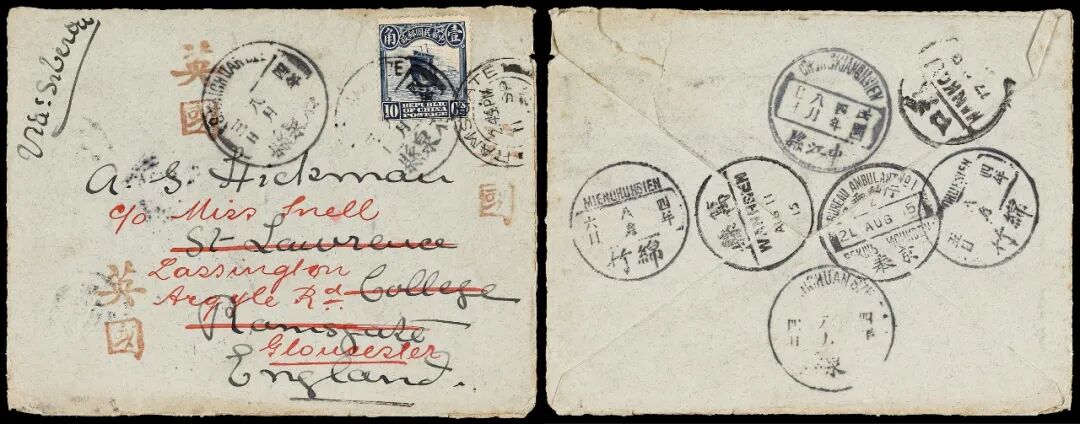 Via Siberia
英國
角 壹
10 CTS
REPUBLIC
OF CHINA
POSTAGE
RAMSGATE
2.45PM
SP
A. S. Hickman
c/o Miss Snell
St Lawrence
Lassington
Argyle Rd College
Ramsgate
Gloucester
England.
英國
四年
八月
中江
HANKOW
MIENCHUHSIEN
四年
八月
六日
綿竹
WANHSIEN
11 AUG 15
萬縣
BUREAU AMBULANT NO 1
21 AUG 15
PEKING MOUKDEN
京奉
四年
八月
五日
綿竹
四年
四日